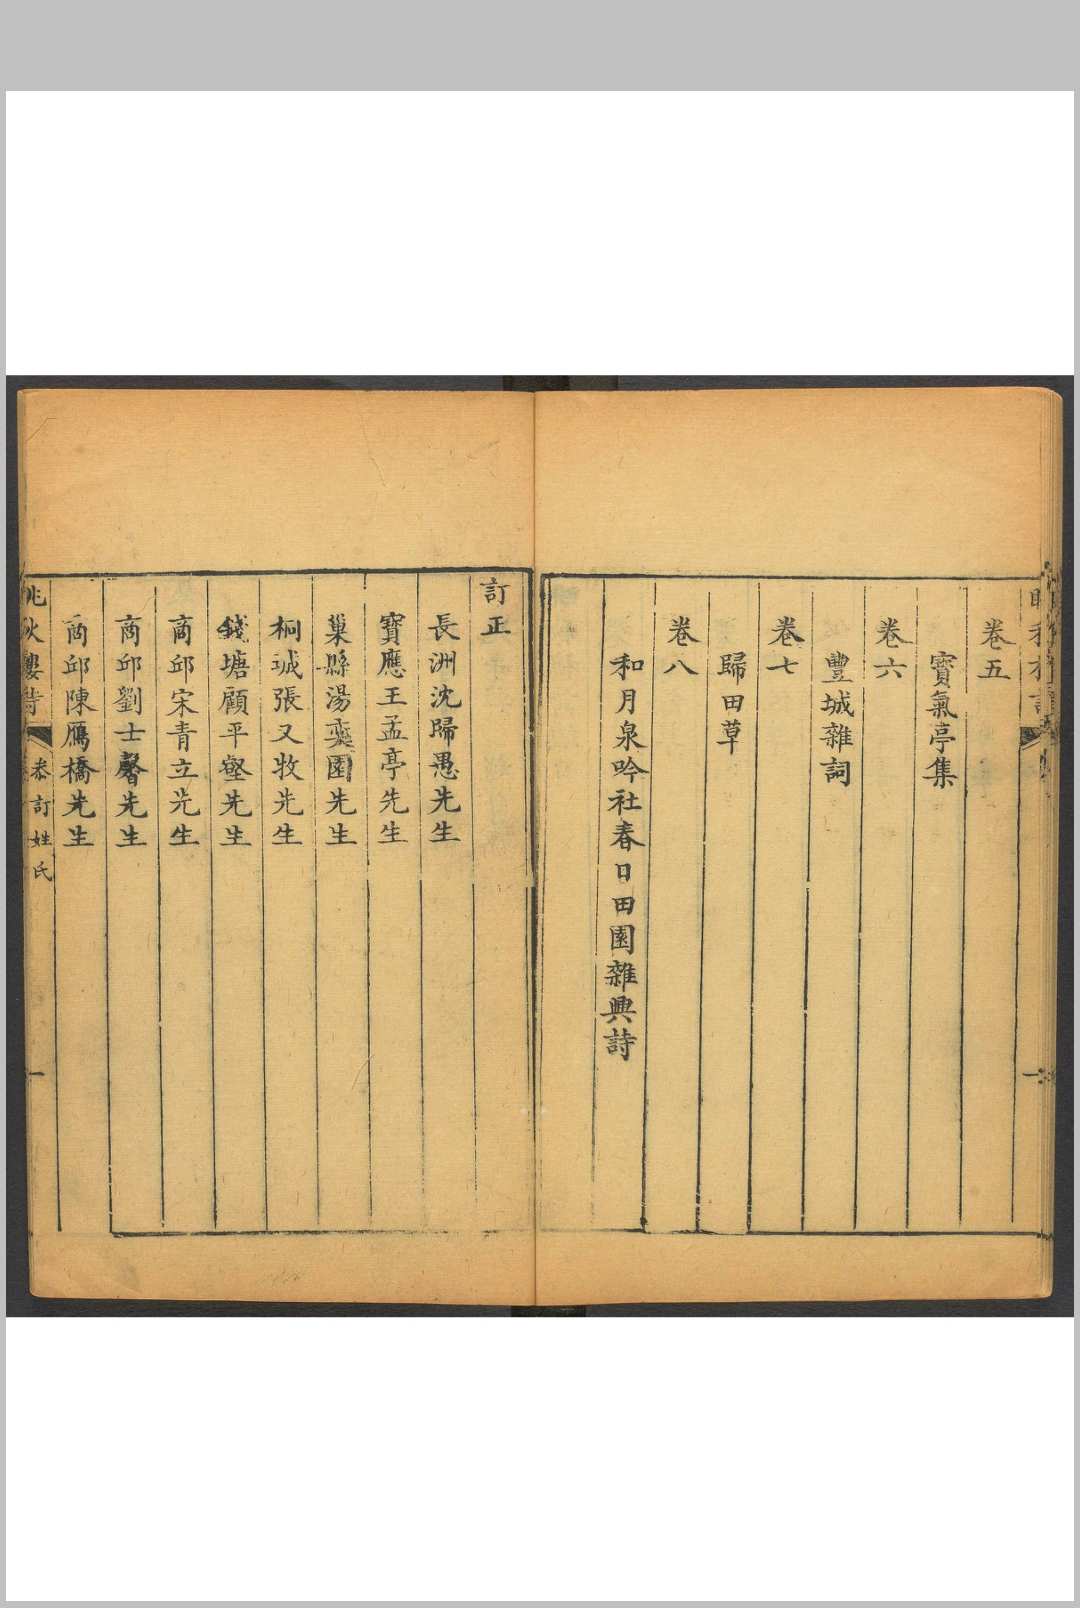 卷五
寳氣亭集
卷六
豐城雜詞
卷七
歸田草
卷八
和月泉吟社春日田園雜興詩
一
訂正
長洲沈歸愚先生
寶應王孟亭先生
巢縣湯奕園先生
桐城張又牧先生
錢塘顧平壑先生
商邱宋青立先生
商邱劉士馨先生
商邱陳鴈橋先生
眺秋樓詩
叅訂姓氏
一